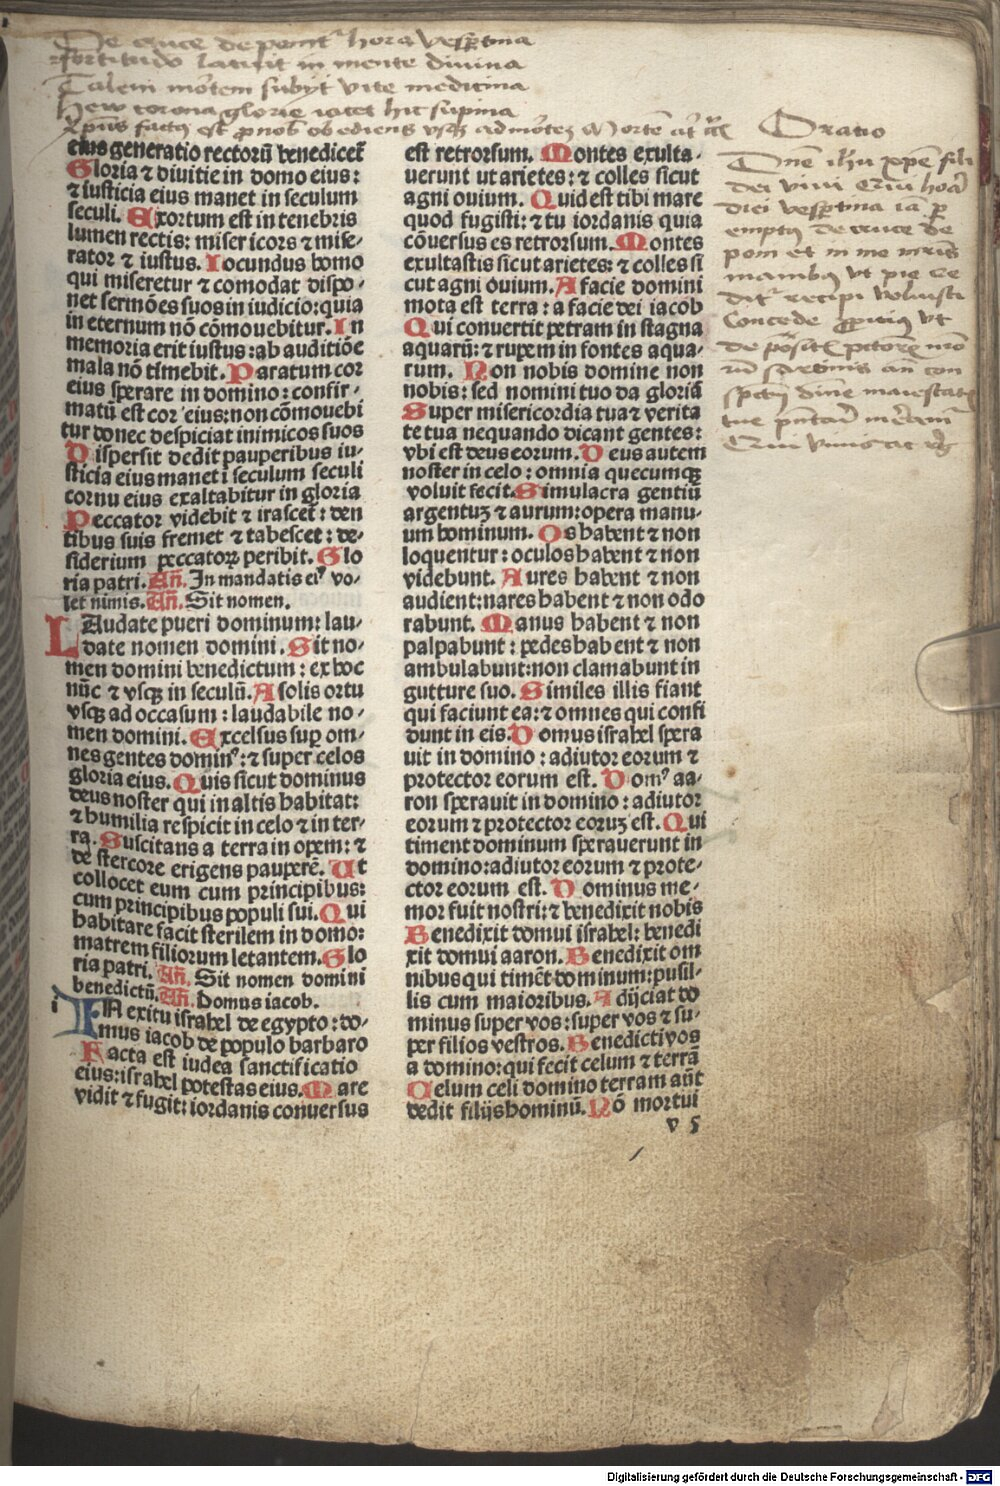 De cruce deponit᷑ hora vesp̱tina
fortitudo latuit in mente diuina
Talem mo᷑tem subyt vite medicina
Hew corona glorie iacet hic supina
xp̄us factꝰ est ꝓ nob̄ obediens vsqꝫ ad mo᷑teꝫ Mortē at̄ c᷑c
eius generatio rectorū benedicet᷑
Gloria ⁊ diuitie in domo eius:
⁊ iusticia eius manet in seculum
seculi. Exortum est in tenebris
lumen rectis: misericors ⁊ mise-
rator ⁊ iustus. Iocundus homo
qui miseretur ⁊ comodat dispo-
net sermōes suos in iudicio: quia
in eternum nō cōmouebitur. In
memoria erit iustus: ab auditiōe
mala nō timebit. Paratum cor
eius sperare in domino: confir-
matū est cor eius: non cōmouebi
tur donec despiciat inimicos suos
Dispersit dedit pauperibus iu-
sticia eius manet i seculum seculi
cornu eius exaltabitur in gloria
Peccator videbit ⁊ irascet᷑: den
tibus suis fremet ⁊ tabescet: de-
siderium peccatoꝝ peribit. Glo
ria patri. Añ. In mandatis eiꝰ vo-
let nimis. Añ. Sit nomen.
LAudate pueri dominum: lau-
date nomen domini. Sit no-
men domini benedictum: ex hoc
nūc ⁊ vsqꝫ in seculū. A solis ortu
vsqꝫ ad occasum: laudabile no-
men domini. Excelsus sup̱ om-
nes gentes dominꝰ: ⁊ super celos
gloria eius. Quis sicut dominus
deus noster qui in altis habitat:
⁊ humilia respicit in celo ⁊ in ter-
ra. Suscitans a terra in opem: ⁊
de stercore erigens pauperē. Ut
collocet eum cum principibus:
cum principibus populi sui. Qui
habitare facit sterilem in domo:
matrem filiorum letantem. Glo
ria patri. Añ. Sit nomen domini
benedictū. Añ. Domus iacob.
i IN exitu israhel de egypto: do-
mus iacob de populo barbaro
Facta est iudea sanctificatio
eius: israhel potestas eius. Mare
vidit ⁊ fugit: iordanis conuersus
est retrorsum. Montes exulta-
uerunt ut arietes: ⁊ colles sicut
agni ouium. Quid est tibi mare
quod fugisti: ⁊ tu iordanis quia
cōuersus es retrorsum. Montes
exultastis sicut arietes: ⁊ colles si
cut agni ouium. A facie domini
mota est terra: a facie dei iacob
Qui conuertit petram in stagna
aquarū: ⁊ rupem in fontes aqua-
rum. Non nobis domine non
nobis: sed nomini tuo da gloriā
Super misericordia tua ⁊ verita
te tua nequando dicant gentes:
vbi est deus eorum. Deus autem
noster in celo: omnia quecumqꝫ
voluit fecit. Simulacra gentiū
argentuꝫ ⁊ aurum: opera manu-
um hominum. Os habent ⁊ non
loquentur: oculos habent ⁊ non
videbunt. Aures habent ⁊ non
audient: nares habent ⁊ non odo
rabunt. Manus habent ⁊ non
palpabunt: pedes habent ⁊ non
ambulabunt: non clamabunt in
gutture suo. Similes illis fiant
qui faciunt ea: ⁊ omnes qui confi
dunt in eis. Domus israhel spera
uit in domino: adiutor eorum ⁊
protector eorum est. Domꝰ aa-
ron sperauit in domino: adiutor
eorum ⁊ protector eoruꝫ est. Qui
timent dominum sperauerunt in
domino: adiutor eorum ⁊ prote-
ctor eorum est. Dominus me-
mor fuit nostri: ⁊ benedixit nobis
Benedixit domui israhel: benedi
xit domui aaron. Benedixit om
nibus qui timēt dominum: pusil-
lis cum maioribus. Adijciat do
minus super vos: super vos ⁊ su-
per filios vestros. Benedicti vos
a domino: qui fecit celum ⁊ terrā
Celum celi domino terram aūt
dedit filijs hominū. Nō mortui
v 5
Oratio
Dn̄e ih̄u xp̄e fili
dei viui Qui hora
diei vesp̱tina ia
emptꝰ de cruce de
poni et in me m̄ris
manibꝰ vt pie cre
dit᷑ recipi voluisti
Concede ꝓpiciꝰ vt
de pctōꝝ nr̄o
rū an con
spectū diuine maiestatis
tue
Qui viuis
Digitalisierung gefördert durch die Deutsche Forschungsgemeinschaft - DFG